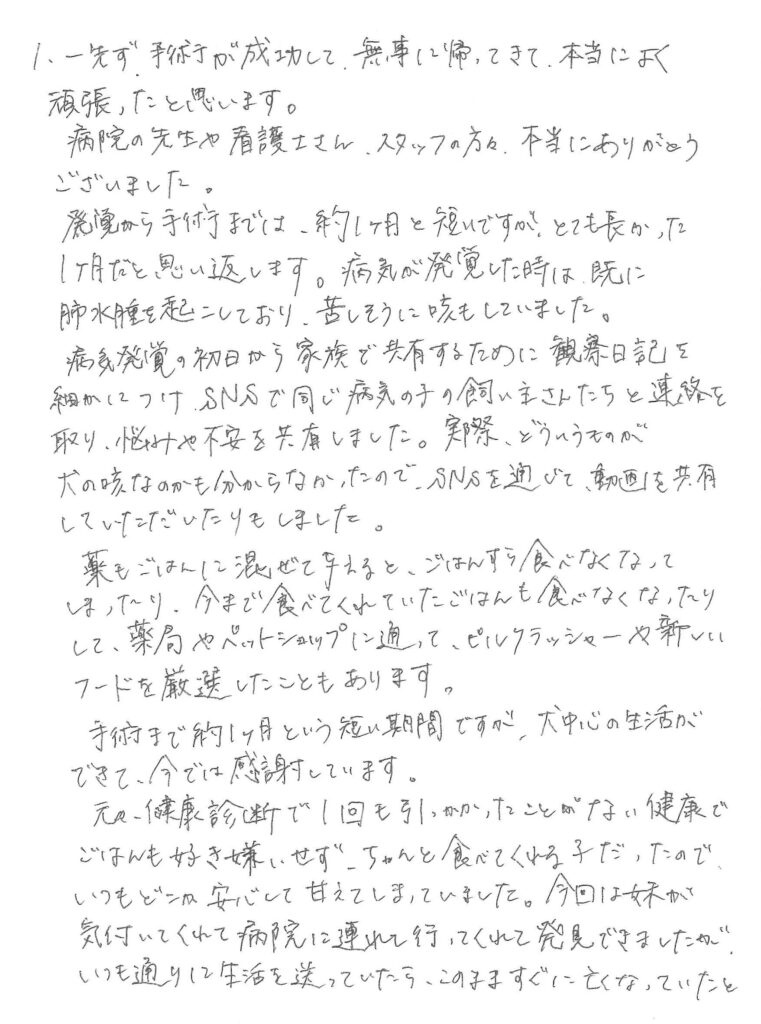 1、一先ず、手術が成功して、無事に帰ってきて、本当によく
頑張ったと思います。
病院の先生や看護士さん、スタッフの方々、本当にありがとう
ございました。
発覚から手術までは、約1ヶ月と短いですが、とても長かった
1ヶ月だと思い返します。病気が発覚した時は、既に
肺水腫を起こしており、苦しそうに咳もしていました。
病気発覚の初日から家族で共有するために観察日記を
細かにつけ、SNSで同じ病気の子の飼い主さんたちと連絡を
取り、悩みや不安を共有しました。実際、どういうものが
犬の咳なのかも分からなかったので、SNSを通じて、動画を共有
していただいたりもしました。
薬もごはんに混ぜて与えると、ごはんすら食べなくなって
しまったり、今まで食べてくれていたごはんも食べなくなったり
して、薬局やペットショップに通って、ピルクラッシャーや新しい
フードを厳選したこともあります。
手術まで約1ヶ月という短い期間ですが、犬中心の生活が
できて、今では感謝しています。
元々、健康診断で1回も引っかかったことがない健康で
ごはんも好き嫌いせず、ちゃんと食べてくれる子だったので、
いつもどこか安心して甘えてしまっていました。今回は妹が
気付いてくれて病院に連れて行ってくれて発見できましたが、
いつも通りに生活を送っていたら、このまますぐに亡くなっていたと